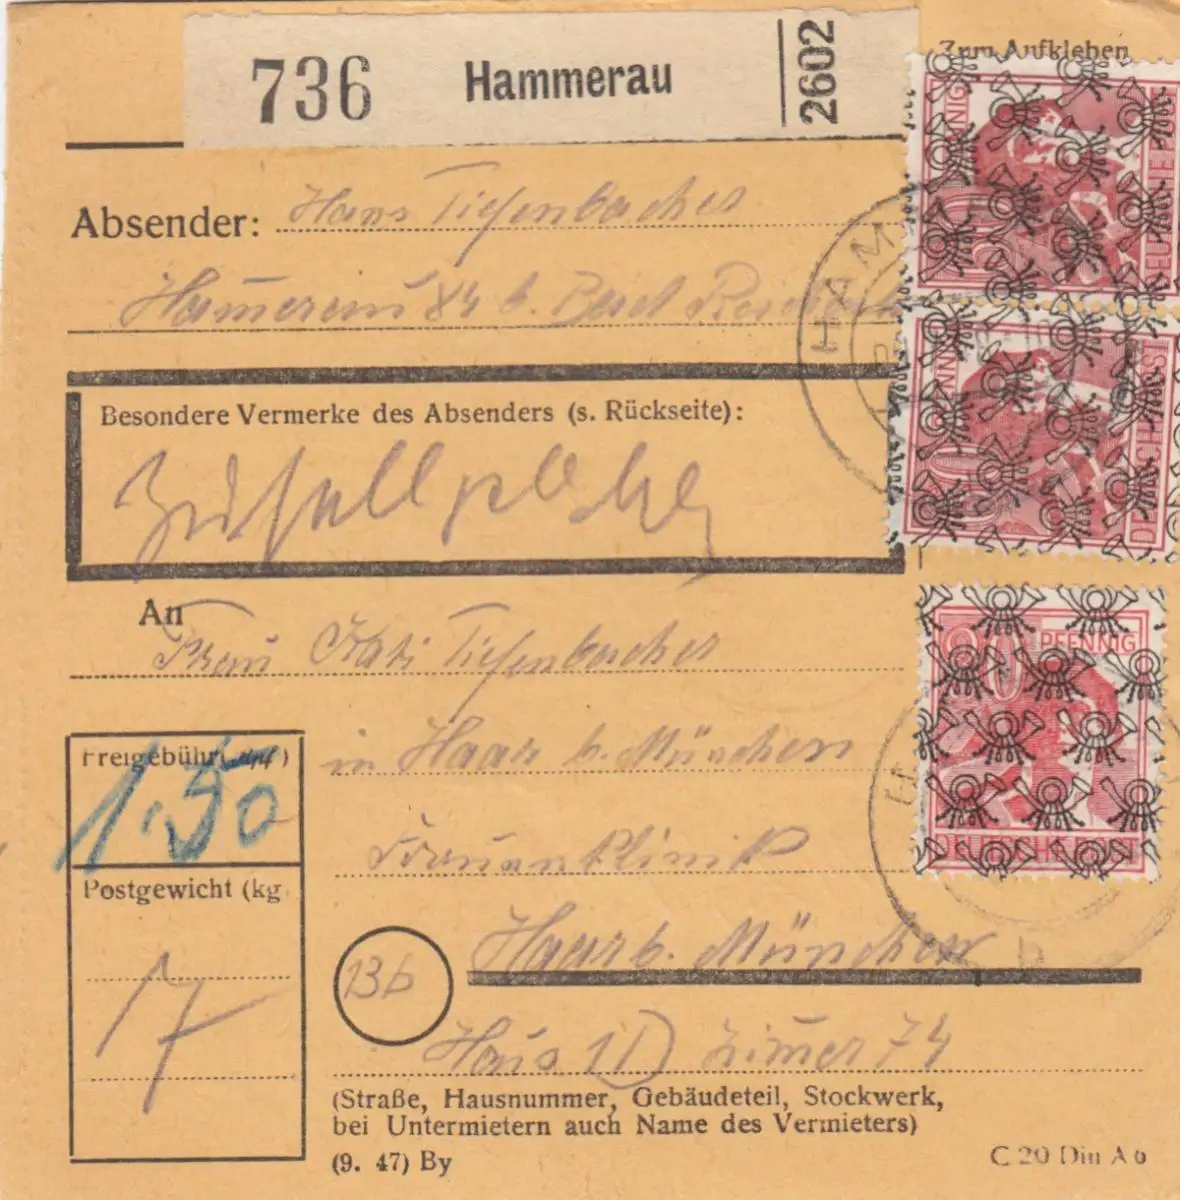 736 Hammerau 2602
Zum Aufkleben
Absender: Hans Tiefenbacher
84 b. Bad
Besondere Vermerke des Absenders (s. Rückseite):
An
Frau Kati Tiefenbacher
in Haar b. München
Frauenklinik
Haar b. München
13b
Haus 11 Zimer 74
Freigebühr
1.50
Postgewicht (kg
17
(Straße, Hausnummer, Gebäudeteil, Stockwerk,
bei Untermietern auch Name des Vermieters)
(9. 47) By
C 20 Din A 6
PFENNIG
DEUTSCHE POST